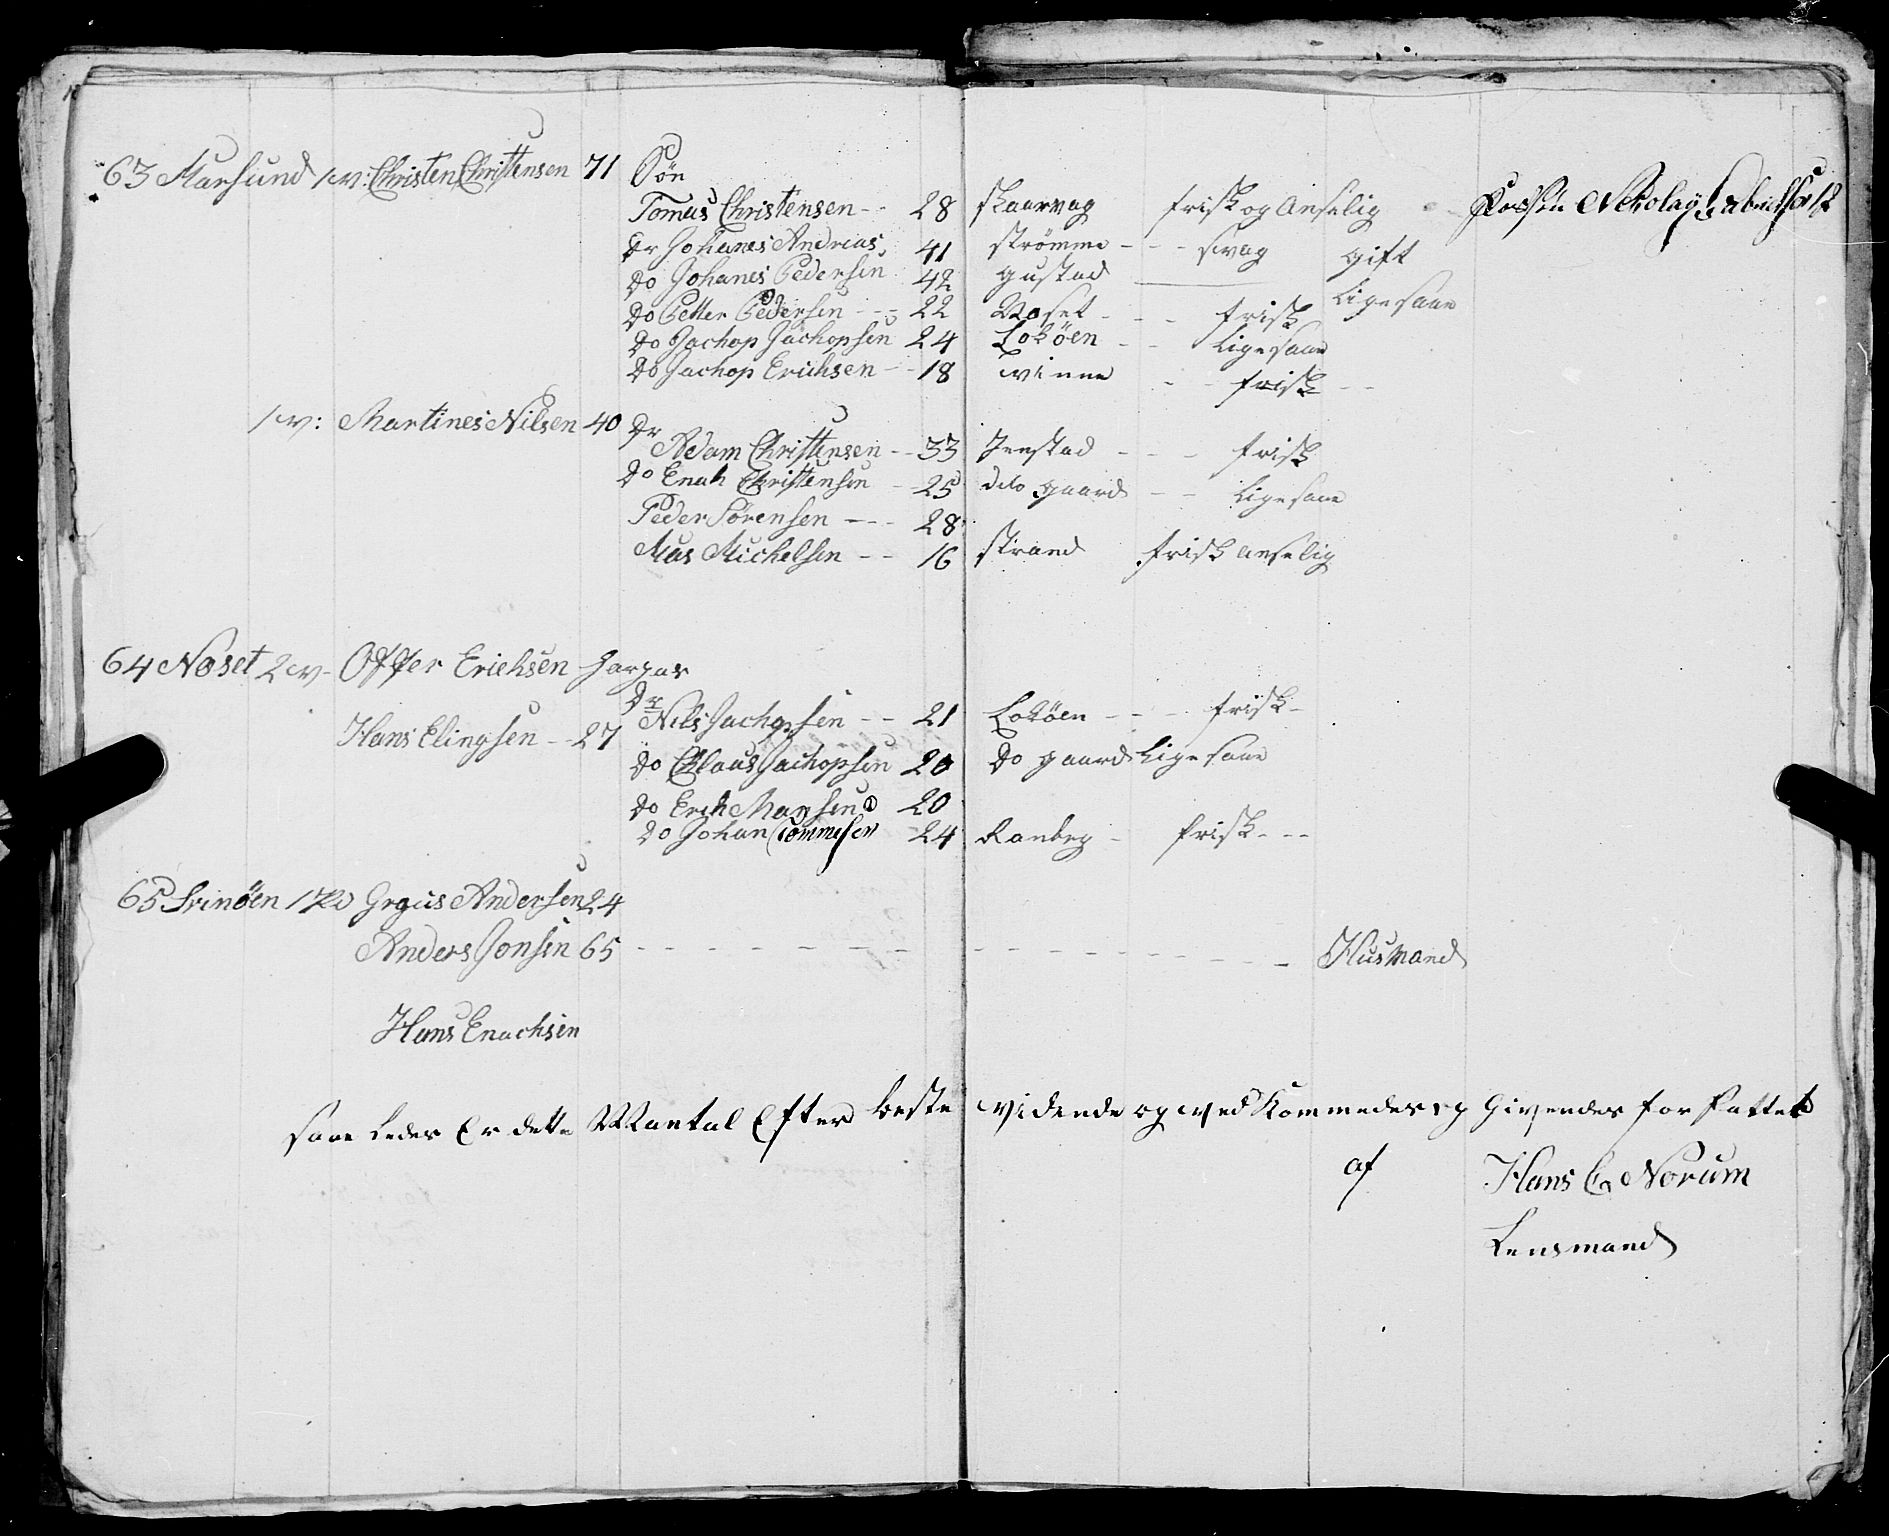 63 Marsund 1 w: Christen Christensen 71 Søn
Tomas Christensen -- 28 Skaarvag frisk og Anselig
Dr Johanes Andreas 41 strømme - - - svag gift
Do Johanes Pedersen 42 gustad ligesaae
Do Petter Pedersen --- 22 Noset - - - frisk
Do Jachop Jachopsen 24 Lokøen - - ligesaae
Do Jachop Erichsen -- 18 winne - - frisk --
1 w: Martines Nilsen 40 Dr
Adam Christensen -- 33 Jenstad - - - frisk
Do Enah Christensen - 25 dito gaard - - ligesaae
Peder Sørensen --- 28
Mas Michelsen -- 16 strand frisk anselig
64 Noset 2 w- Offer Erichsen
Dr
Hans Elingsen -- 27 Nils Jachopsen -- 21 Lokøen - - - frisk -
Do Claus Jachopsen 20 Do gaard Ligesaae
Do Erik Hansen 20
Do Johan Tommesen 24 Ranbeg - frisk - --
65 Svinøen 1 Grgus Andersen 24
Anders Jonsen 65 - - - - - - - - - - - - - - - - - Husmand
Hans Enachsen
saaledes Er dette Mantal Efter beste vidende og ved Kommedes givendes forfattet
af Hans C Norum
Lensmand